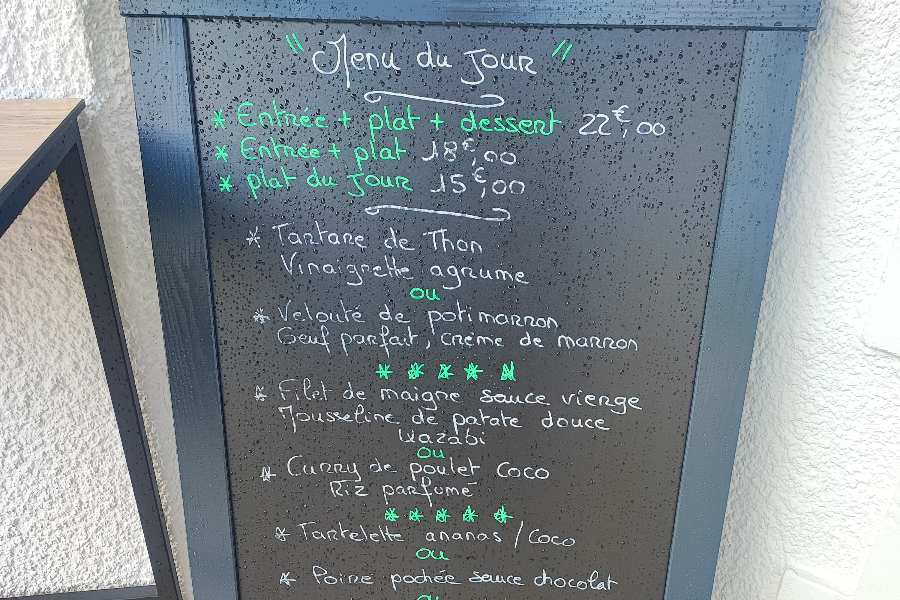 "Menu du Jour"
* Entrée + plat + dessert 22€,00
* Entrée + plat 18€,00
* plat du Jour 15€,00
* Tartare de Thon
Vinaigrette agrume
ou
* Velouté de potimarron
Oeuf parfait, crème de marron
* * * * *
* Filet de maigre sauce vierge
Mousseline de patate douce
Wazabi
ou
* Curry de poulet Coco
Riz parfumé
* * * * *
* Tartelette ananas / Coco
ou
* Poire pochée sauce chocolat
ou